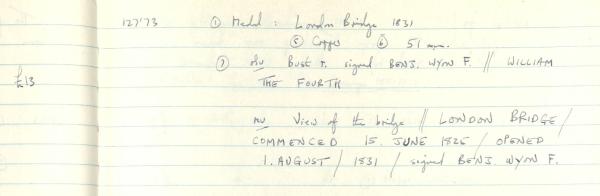 127'73 ① Medal : London Bridge 1831
⑤ Copper ⑥ 51 mm.
⑦ obv Bust r. signed BENJ. WYON F. // WILLIAM
£13
THE FOURTH
rev View of the bridge // LONDON BRIDGE /
COMMENCED 15. JUNE 1825 / OPENED
1. AUGUST / 1831 / signed BENJ. WYON F.